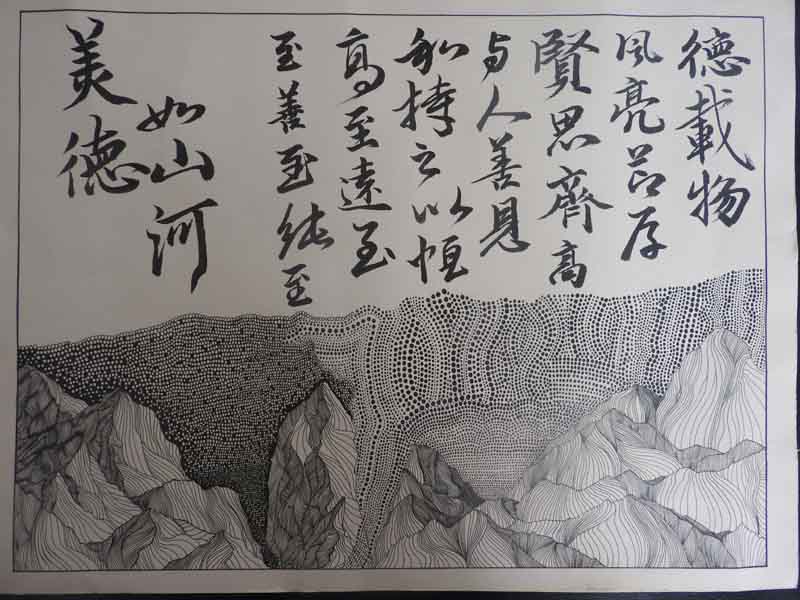 美德
如山河
至善至纯至
高至遠至
和持之以恒
与人善見
賢思齊高
风亮节厚
德載物